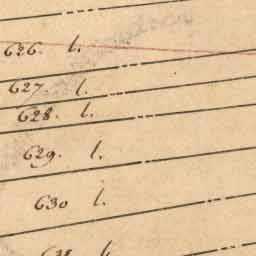 626. l.
627. l.
628. l.
629. l.
630 l.